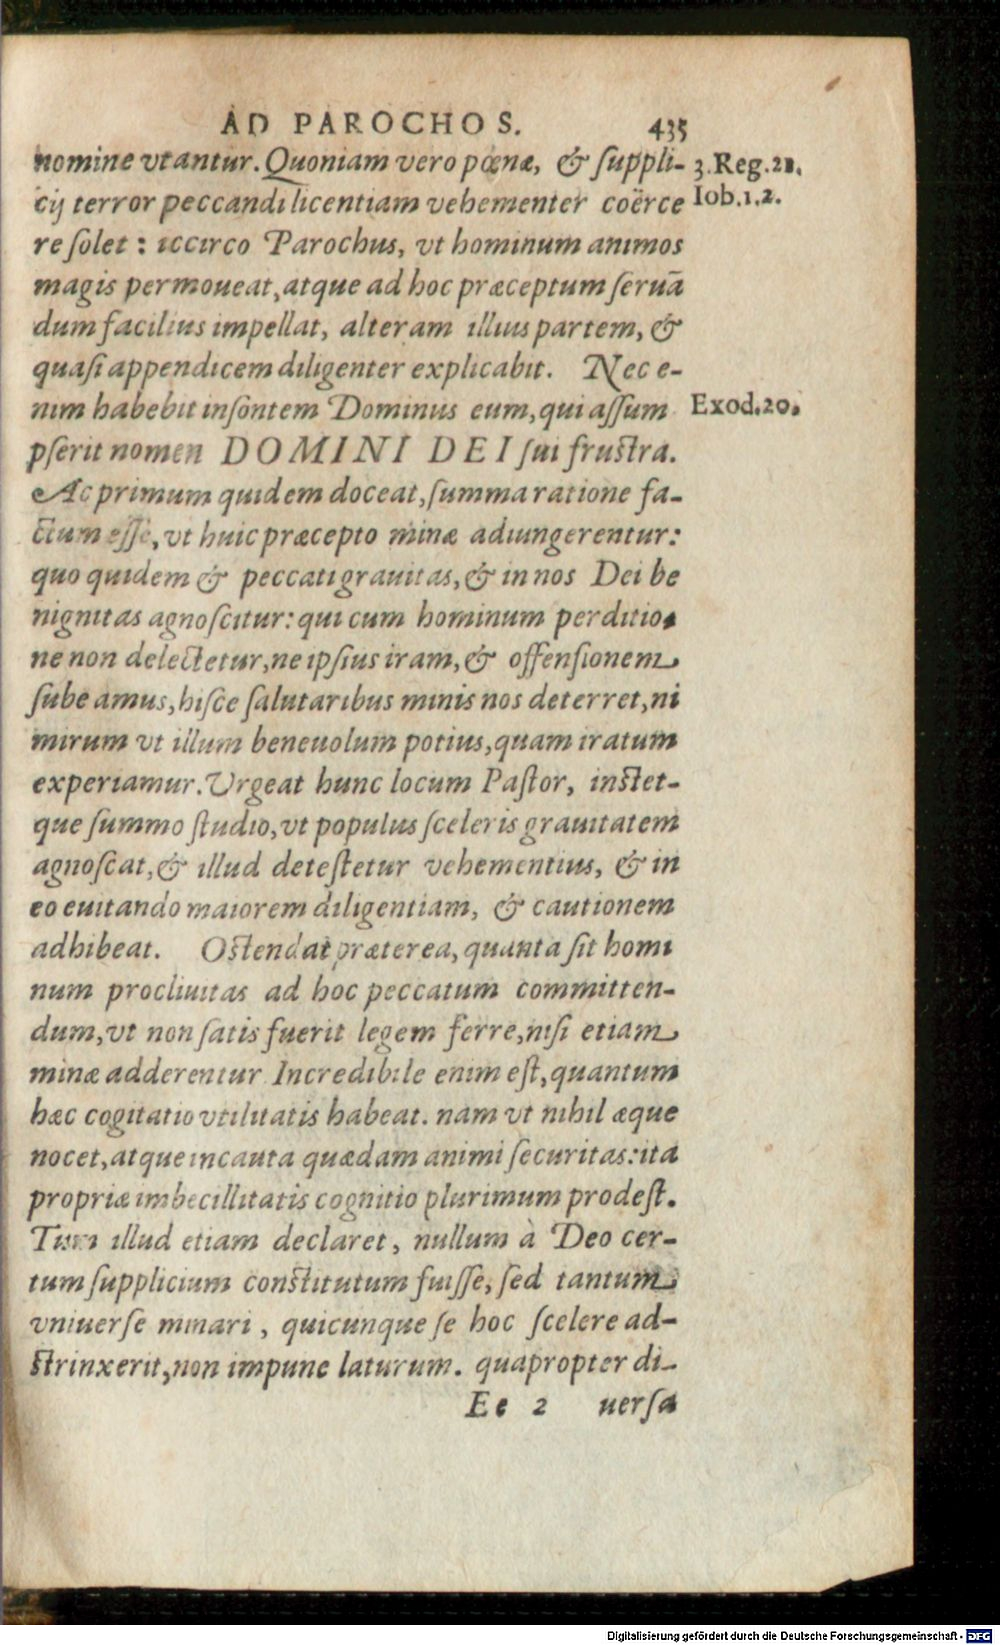 AD PAROCHOS. 435
nomine vtantur. Quoniam vero pœnæ, & ſuppli- 3. Reg. 21.
cij terror peccandi licentiam vehementer coërce Iob. 1. 2.
re ſolet: iccirco Parochus, vt hominum animos
magis permoueat, atque ad hoc præceptum ſeruā
dum facilius impellat, alteram illius partem, &
quaſi appendicem diligenter explicabit. Nec e-
nim habebit inſontem Dominus eum, qui aſſum Exod. 20.
pſerit nomen DOMINI DEI ſui fruſtra.
Ac primum quidem doceat, ſumma ratione fa-
ctum eſſe, vt huic præcepto minæ adiungerentur:
quo quidem & peccati grauitas, & in nos Dei be
nignitas agnoſcitur: qui cum hominum perditio-
ne non delectetur, ne ipſius iram, & offenſionem
ſubeamus, hiſce ſalutaribus minis nos deterret, ni
mirum vt illum beneuolum potius, quam iratum
experiamur. Vrgeat hunc locum Paſtor, inſtet-
que ſummo ſtudio, vt populus ſceleris grauitatem
agnoſcat, & illud deteſtetur vehementius, & in
eo euitando maiorem diligentiam, & cautionem
adhibeat. Oſtendat præterea, quanta ſit homi
num procliuitas ad hoc peccatum committen-
dum, vt non ſatis fuerit legem ferre, niſi etiam
minæ adderentur Incredibile enim eſt, quantum
hæc cogitatio vtilitatis habeat. nam vt nihil æque
nocet, atque incauta quædam animi ſecuritas: ita
propriæ imbecillitatis cognitio plurimum prodeſt.
Tum illud etiam declaret, nullum à Deo cer-
tum ſupplicium conſtitutum fuiſſe, ſed tantum
vniuerſe minari, quicunque ſe hoc ſcelere ad-
ſtrinxerit, non impune laturum. quapropter di-
Ee 2 uerſa
Digitalisierung gefördert durch die Deutsche Forschungsgemeinschaft - DFG